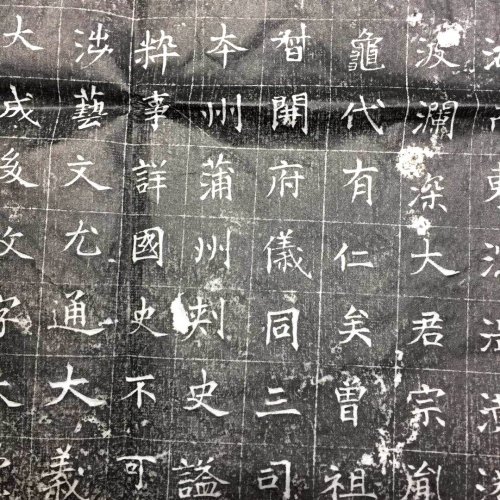 東
波瀾深大君宗胤
龜代有仁矣曾祖
開府儀同三司
本州蒲州刺史謚
粹事詳國史不可
涉藝文尤通大義
大成